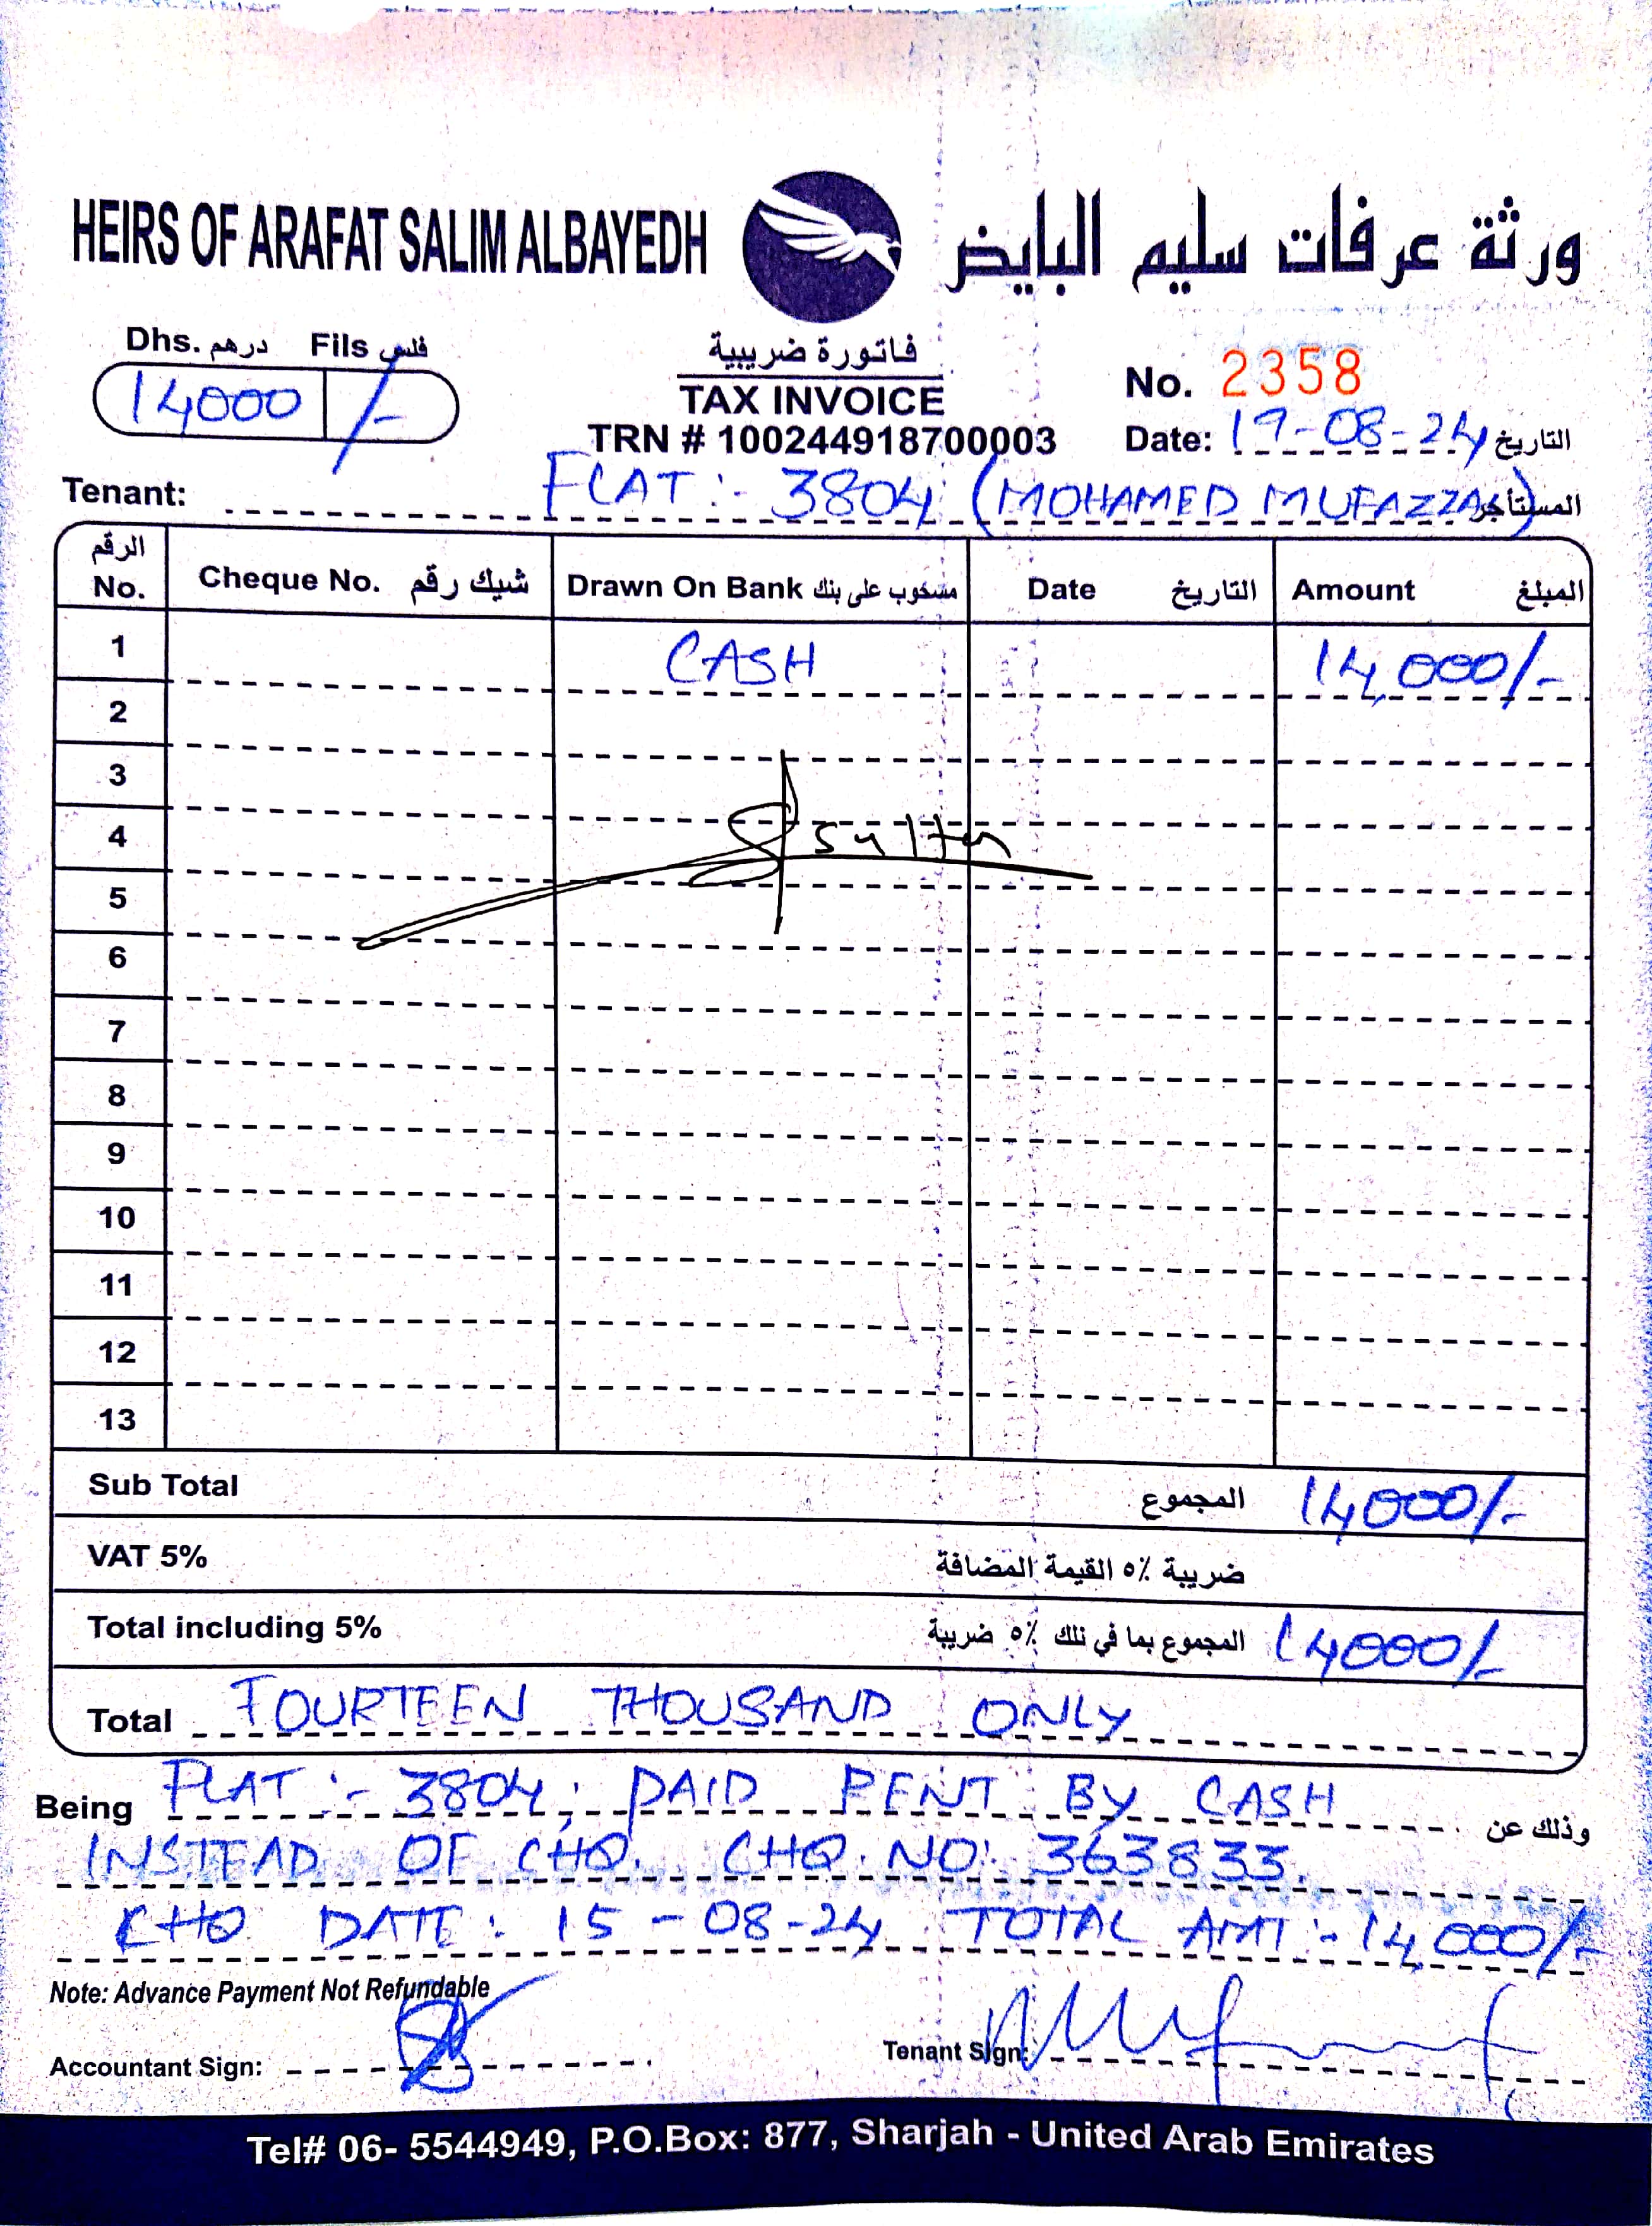 HEIRS OF ARAFAT SALIM ALBAYEDH ورثة عرفات سليم البايض
Dhs. درهم Fils فلس
14000 /-
فاتورة ضريبية
TAX INVOICE
TRN # 100244918700003
No. 2358
Date: 19-08-24 التاريخ
Tenant: FLAT:- 3804 (MOHAMED MUFAZZAL) المستأجر
الرقم No. Cheque No. شيك رقم Drawn On Bank مسحوب على بنك Date التاريخ Amount المبلغ
1 CASH 14,000/-
2
3
4 sultan
5
6
7
8
9
10
11
12
13
Sub Total المجموع 14000/-
VAT 5% ضريبة ٥٪ القيمة المضافة
Total including 5% المجموع بما في تلك ٥٪ ضريبة 14000/-
Total FOURTEEN THOUSAND ONLY
Being FLAT:- 3804; PAID RENT BY CASH وذلك عن
INSTEAD OF CHQ. CHQ. NO: 363833.
CHQ DATE: 15-08-24 TOTAL AMT:- 14,000/-
Note: Advance Payment Not Refundable
Accountant Sign: Tenant Sign:
Tel# 06- 5544949, P.O.Box: 877, Sharjah - United Arab Emirates